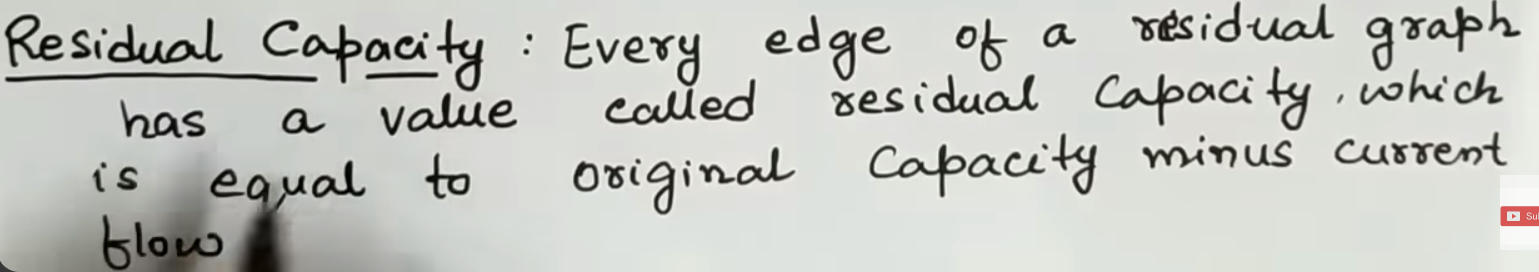 Residual Capacity : Every edge of a residual graph
has a value called residual Capacity, which
is equal to original Capacity minus current
flow